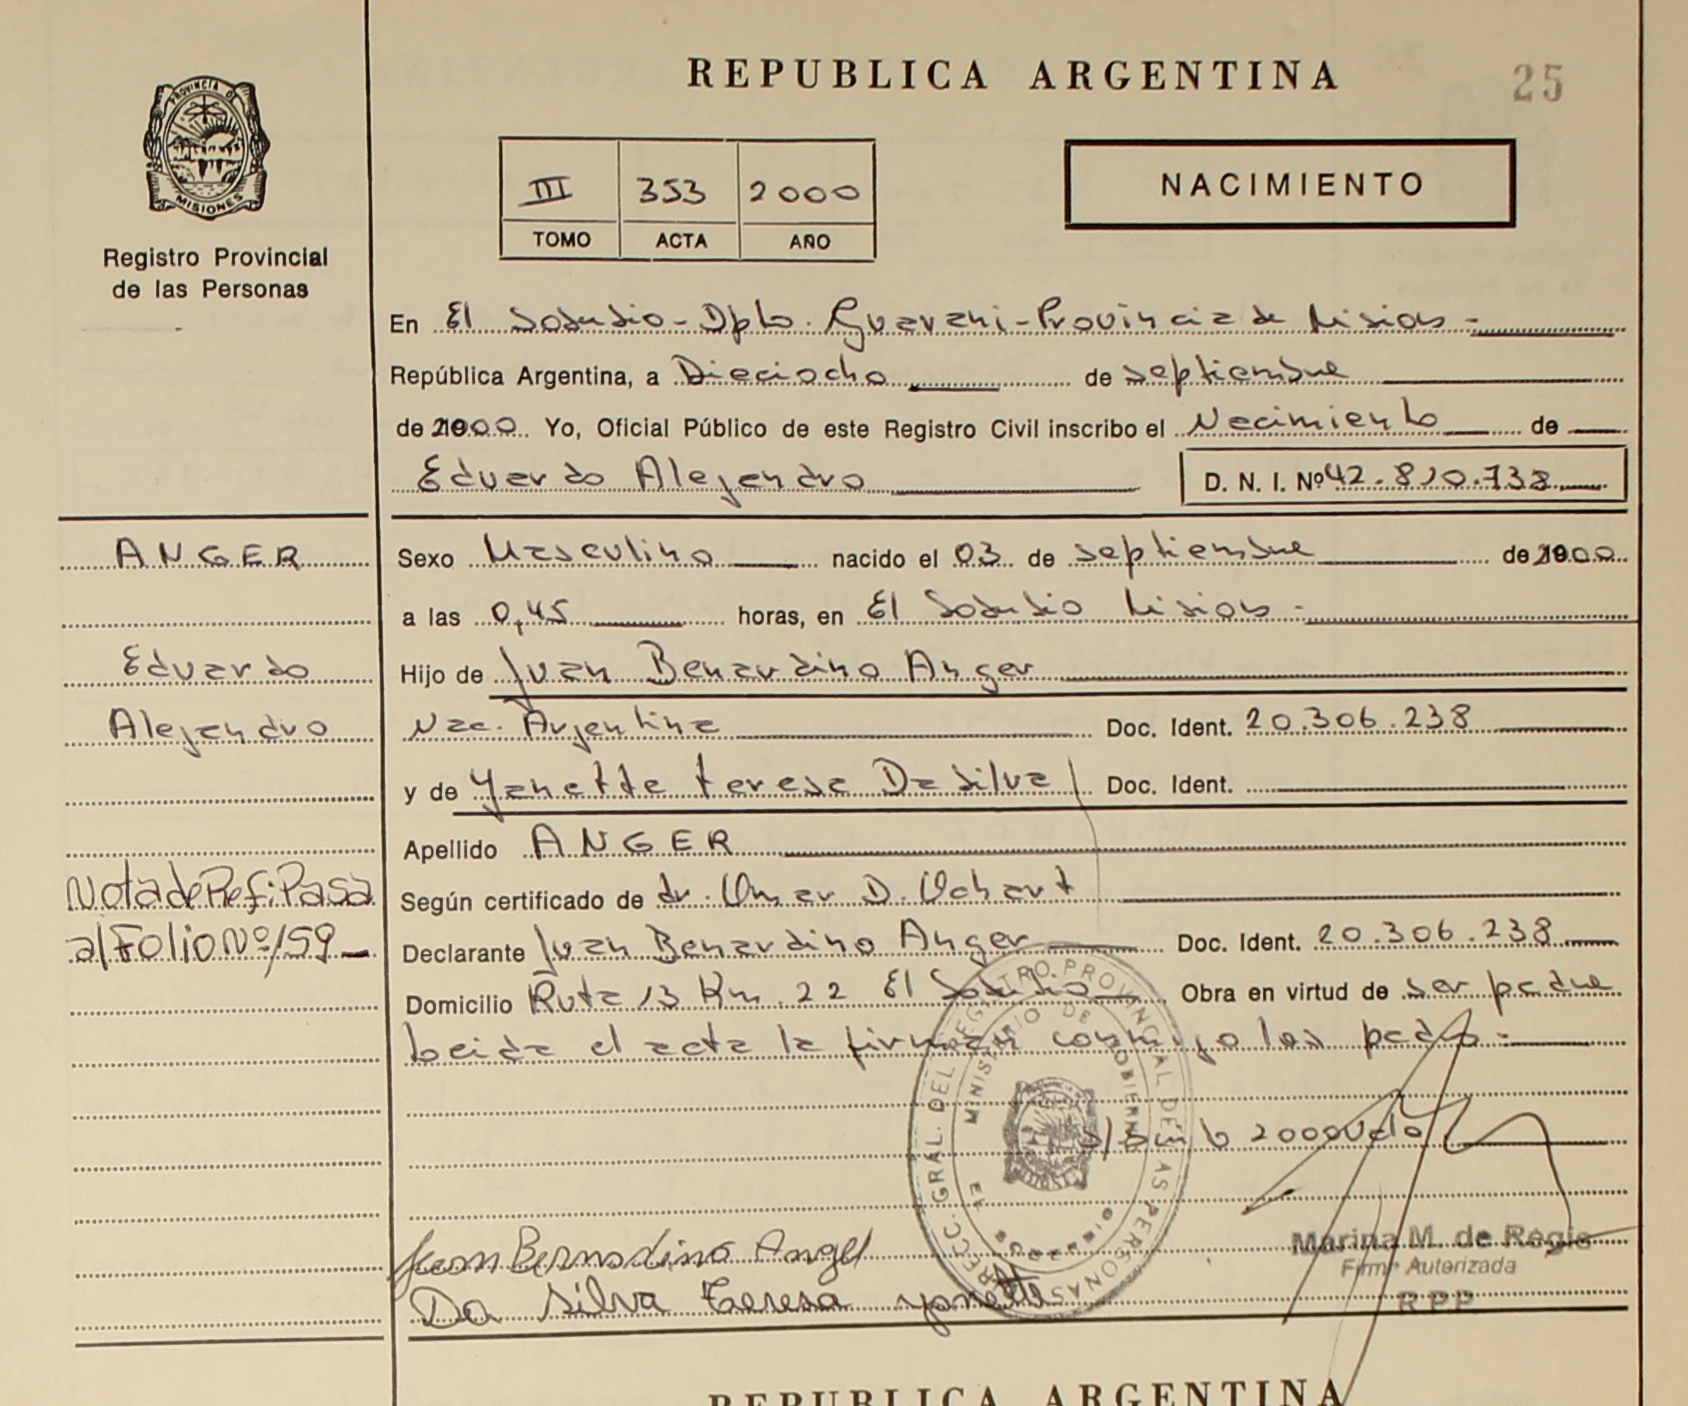 REPUBLICA ARGENTINA
25
PROVINCIA DE
MISIONES
Registro Provincial
de las Personas
III 353 2000
TOMO ACTA AÑO
NACIMIENTO
En El Soberbio - Dpto. Guarani - Provincia de Misiones -
República Argentina, a Dieciocho de septiembre
de 2000 Yo, Oficial Público de este Registro Civil inscribo el Nacimiento de
Eduardo Alejandro D. N. I. Nº 42.810.738
ANGER
Sexo Masculino nacido el 03 de septiembre de 2000
a las 0,45 horas, en El Soberbio Misiones -
Eduardo
Hijo de Juan Benardino Anger
Alejandro
Nac. Argentina Doc. Ident. 20.306.238
y de Yanette teresa Da silva Doc. Ident.
Apellido ANGER
Nota de Ref: Pasa
al Folio Nº 159
Según certificado de dr. Omar D. Ochart
Declarante Juan Benardino Anger Doc. Ident. 20.306.238
Domicilio Ruta 13 Km. 22 El Soberbio Obra en virtud de ser padre
Leida el acta la firman conmigo los padres -
2000 vale
DIRECC. GRAL. DEL REGISTRO PROVINCIAL DE LAS PERSONAS
MINISTERIO DE GOBIERNO
Juan Bernadino Anger
Da Silva Teresa yanette
Marina M. de Regis
Firma Autorizada
R.P.P.
REPUBLICA ARGENTINA